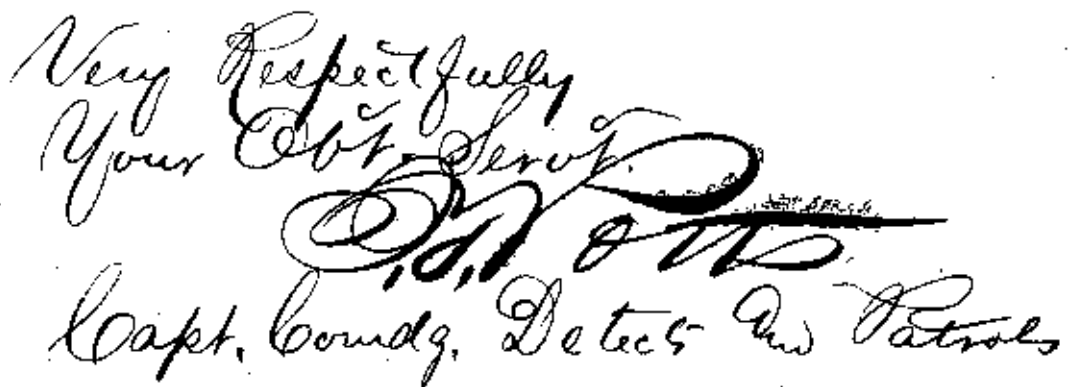 Very Respectfully
Your Obt. Servt.
Potts
Capt. Comdg. Detect and Patrols